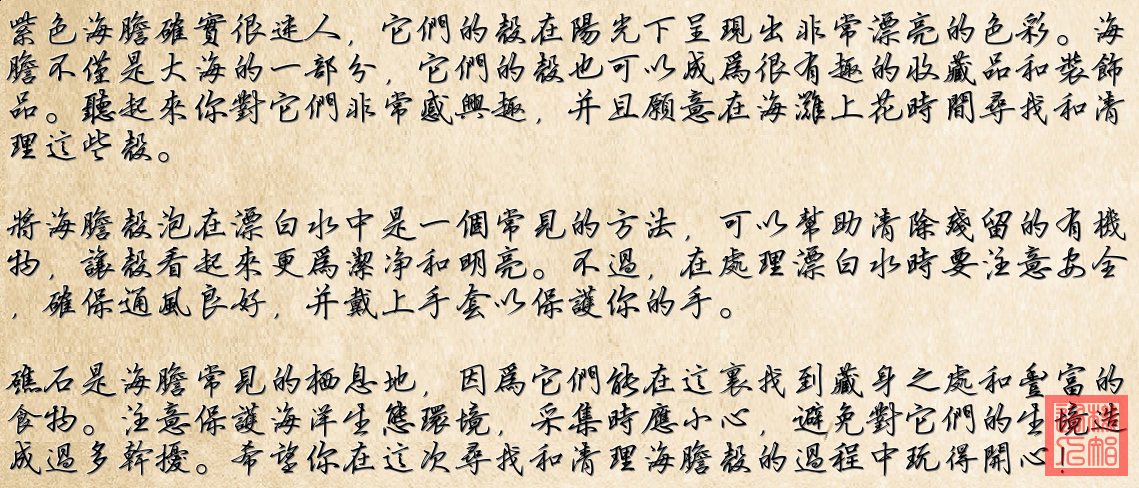 紫色海膽確實很迷人，它們的殼在陽光下呈現出非常漂亮的色彩。海
膽不僅是大海的一部分，它們的殼也可以成爲很有趣的收藏品和裝飾
品。聽起來你對它們非常感興趣，并且願意在海灘上花時間尋找和清
理這些殼。
將海膽殼泡在漂白水中是一個常見的方法，可以幫助清除殘留的有機
物，讓殼看起來更爲潔净和明亮。不過，在處理漂白水時要注意安全
，確保通風良好，并戴上手套以保護你的手。
礁石是海膽常見的栖息地，因爲它們能在這裏找到藏身之處和豐富的
食物。注意保護海洋生態環境，采集時應小心，避免對它們的生境造
成過多幹擾。希望你在這次尋找和清理海膽殼的過程中玩得開心！